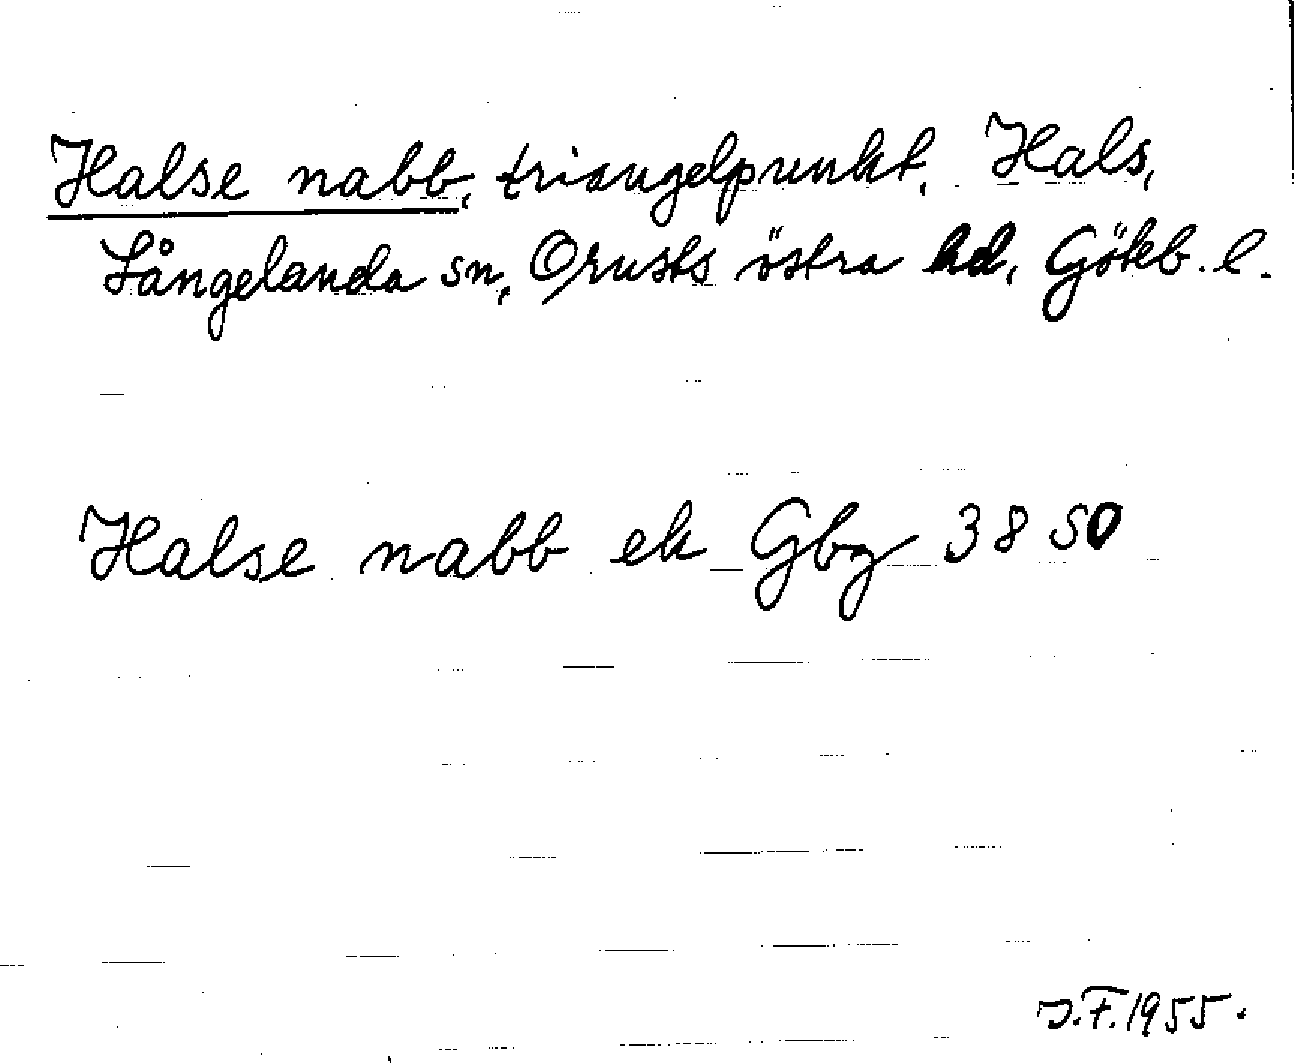 Halse nabb, triangelpunkt, Hals,
Långelanda sn, Orusts östra hd, Göteb. l.
Halse nabb ek Gbg 3850
J.F. 1955.